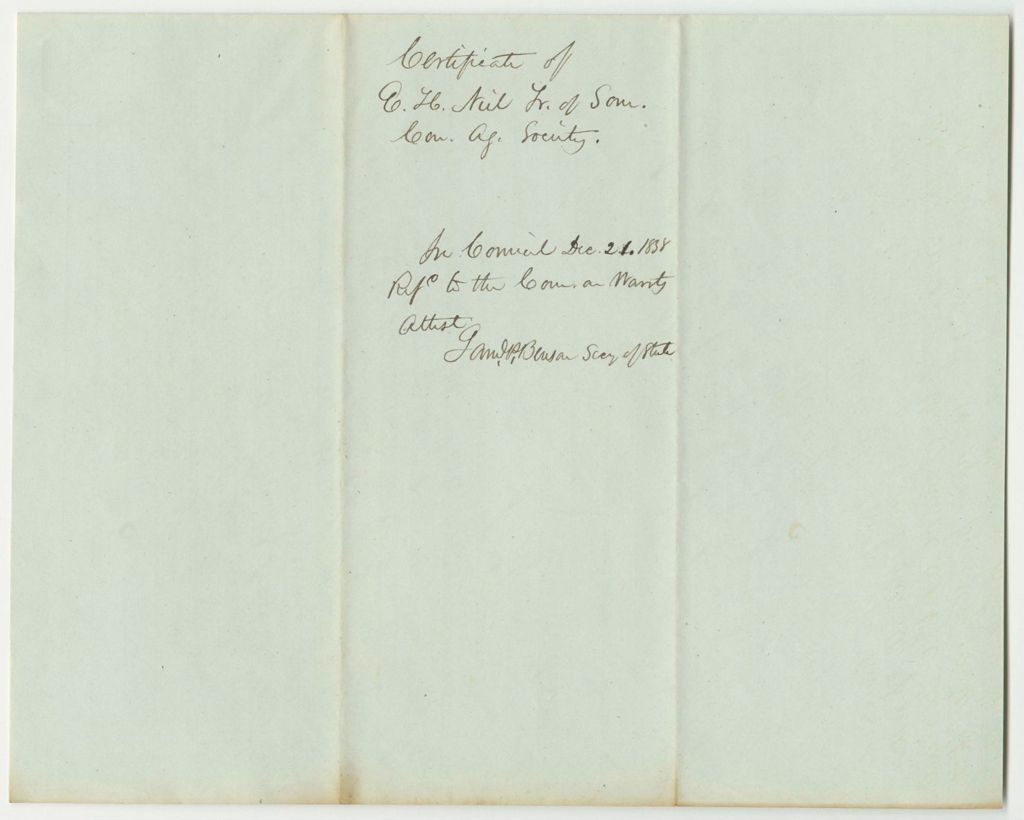 Certificate of
E. H. Neil Tr. of Som.
Con. Ag. Society.
In Council Dec. 21. 1838
Refd to the Com. on Warrts
Attest
Saml. P. Benson Secy of State